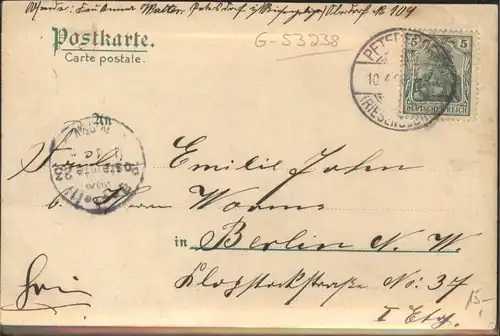 Absender: Frau Anna Walter, Petersdorf i/Riesengebirge, Oberdorf No 104
Postkarte.
Carte postale.
G-53238
PETERS
10.4
(RIESENGEB
5 5
DEUTSCHES REICH
An
Frau Emilie John
b. Herrn Worms
in Berlin N. W.
Klopstockstraße No: 37
I Etg.
frei
15.-